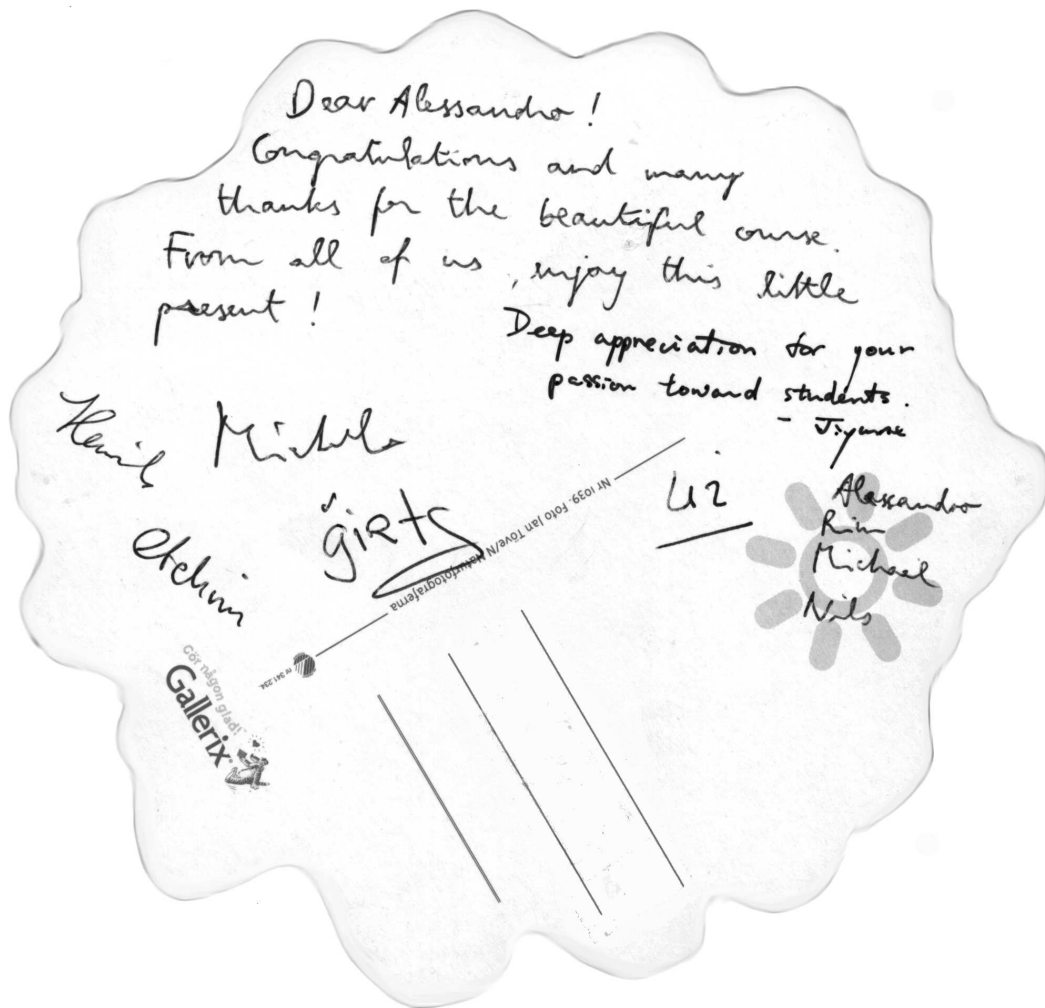 Dear Alessandro!
Congratulations and many
thanks for the beautiful course.
From all of us, enjoy this little
present!
Deep appreciation for your
passion toward students.
Henrik
Michele
Alessandro
Rim
Michael
Nils
Nr 1039. Foto Jan Töve/N Naturfotograferna
nr 341 294
Gör någon glad!
Gallerix